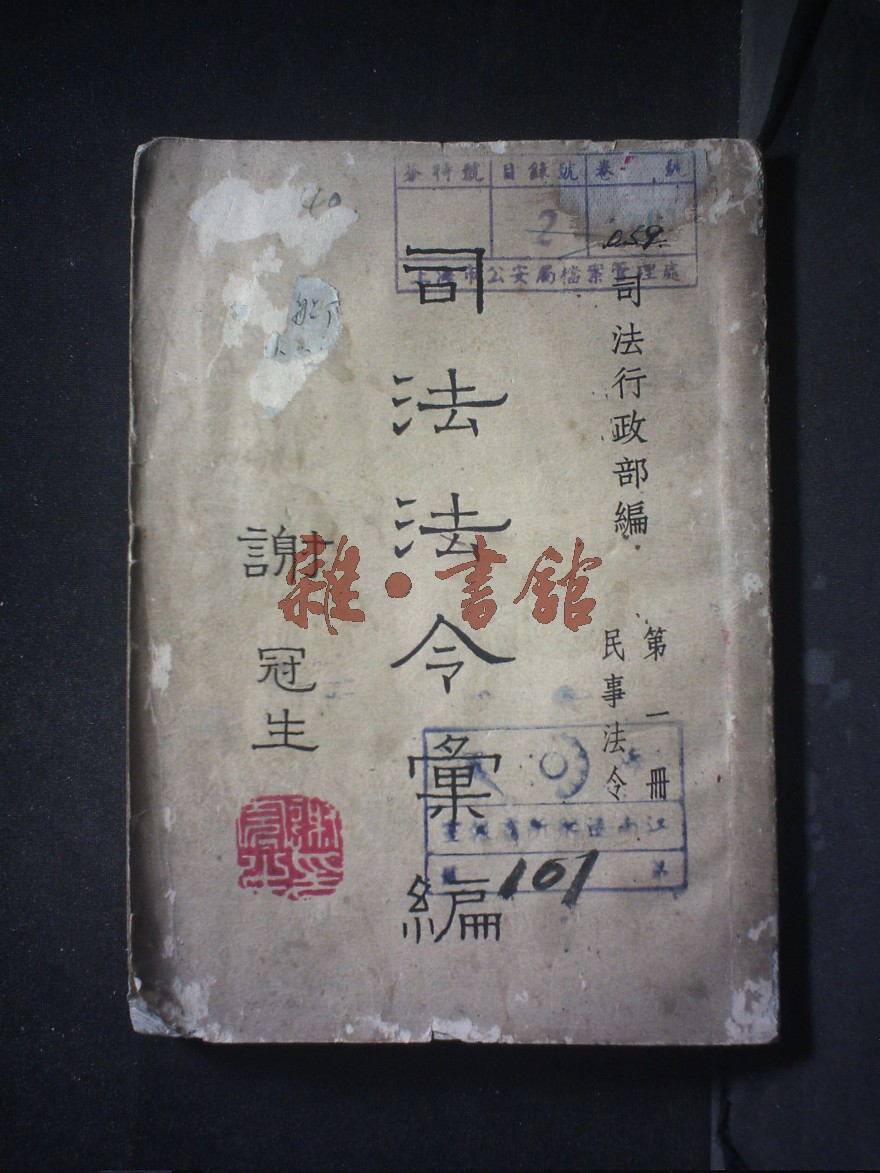 司法行政部編
第一冊
民事法令
司法法令彙編
謝冠生
目錄號
卷 號
2
059
上海市公安局檔案管理處
101
雜·書館